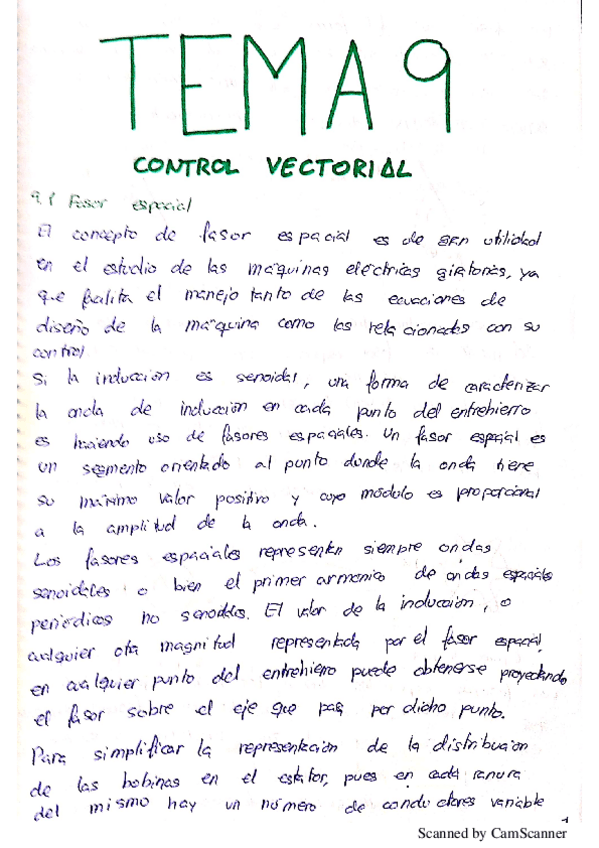 TEMA 9
CONTROL VECTORIAL
9.1 Fasor espacial
El concepto de fasor espacial es de gran utilidad
en el estudio de las máquinas eléctricas giratorias, ya
que facilita el manejo tanto de las ecuaciones de
diseño de la máquina como las relacionadas con su
control
Si la inducción es senoidal, una forma de caracterizar
la onda de inducción en cada punto del entrehierro
es haciendo uso de fasores espaciales. Un fasor espacial es
un segmento orientado al punto donde la onda tiene
su máximo valor positivo y cuyo módulo es proporcional
a la amplitud de la onda.
Los fasores espaciales representan siempre ondas
senoidales o bien el primer armónico de ondas espaciales
periódicas no senoidales. El valor de la inducción, o
cualquier otra magnitud representada por el fasor espacial,
en cualquier punto del entrehierro puede obtenerse proyectando
el fasor sobre el eje que pasa por dicho punto.
Para simplificar la representación de la distribución
de las bobinas en el estator, pues en cada ranura
del mismo hay un número de conductores variable
1
Scanned by CamScanner